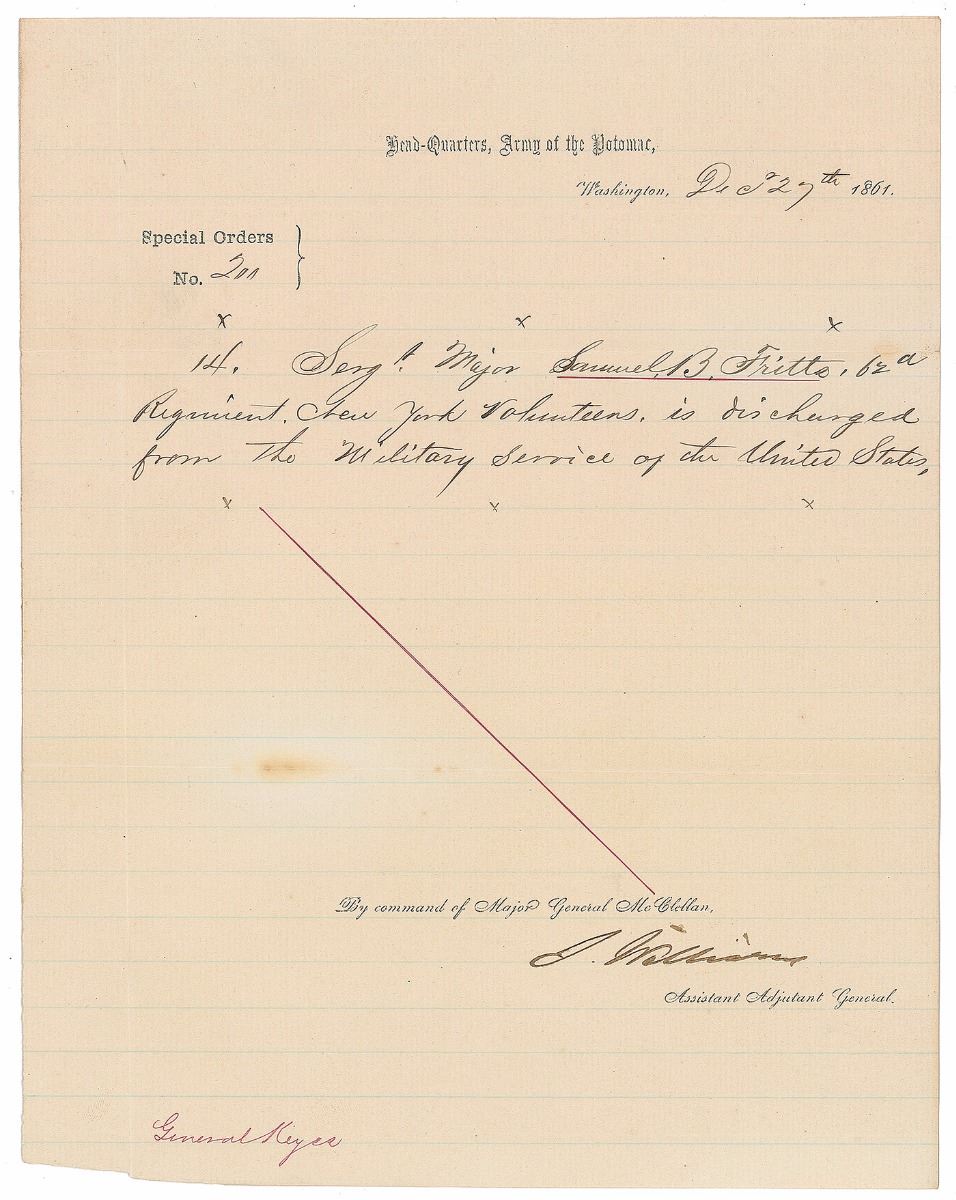 Head-Quarters, Army of the Potomac,
Washington, Decr 27th 1861.
Special Orders
No. 200
x x x
14. Sergt Major Samuel B. Fritts, 62d
Regiment. New York Volunteers. is discharged
from the Military Service of the United States,
x x x
By command of Major General McClellan,
S. Williams
Assistant Adjutant General.
General Keyes